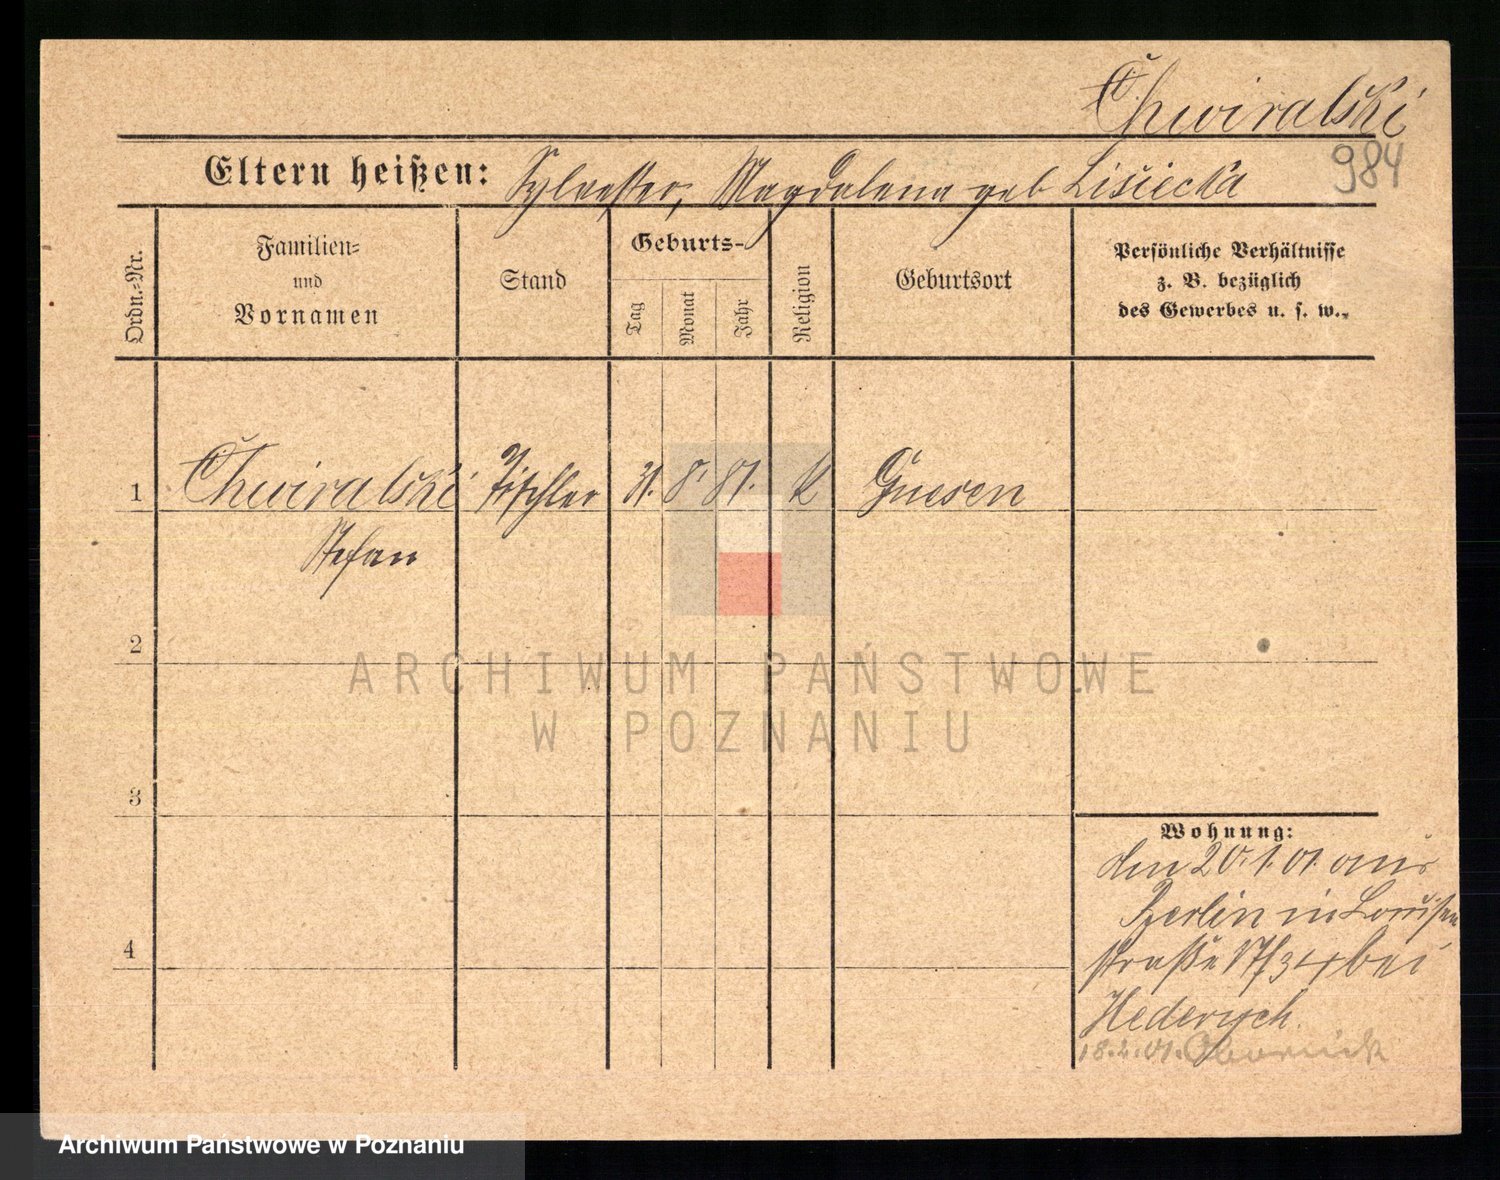 Chwiralski
984
Eltern heißen: Sylvester, Magdalena geb Lisiecka
Ordn.-Nr.
Familien-
und
Vornamen
Stand
Geburts-
Tag
Monat
Jahr
Religion
Geburtsort
Persönliche Verhältnisse
z. B. bezüglich
des Gewerbes u. s. w.
1 Chwiralski Tischler 31. 8. 81. K Gnesen
Stefan
2
3
4
ARCHIWUM PAŃSTWOWE
W POZNANIU
Wohnung:
den 20. 1. 01. aus
Berlin in Louisen
straße bei
18.2.01.
Archiwum Państwowe w Poznaniu